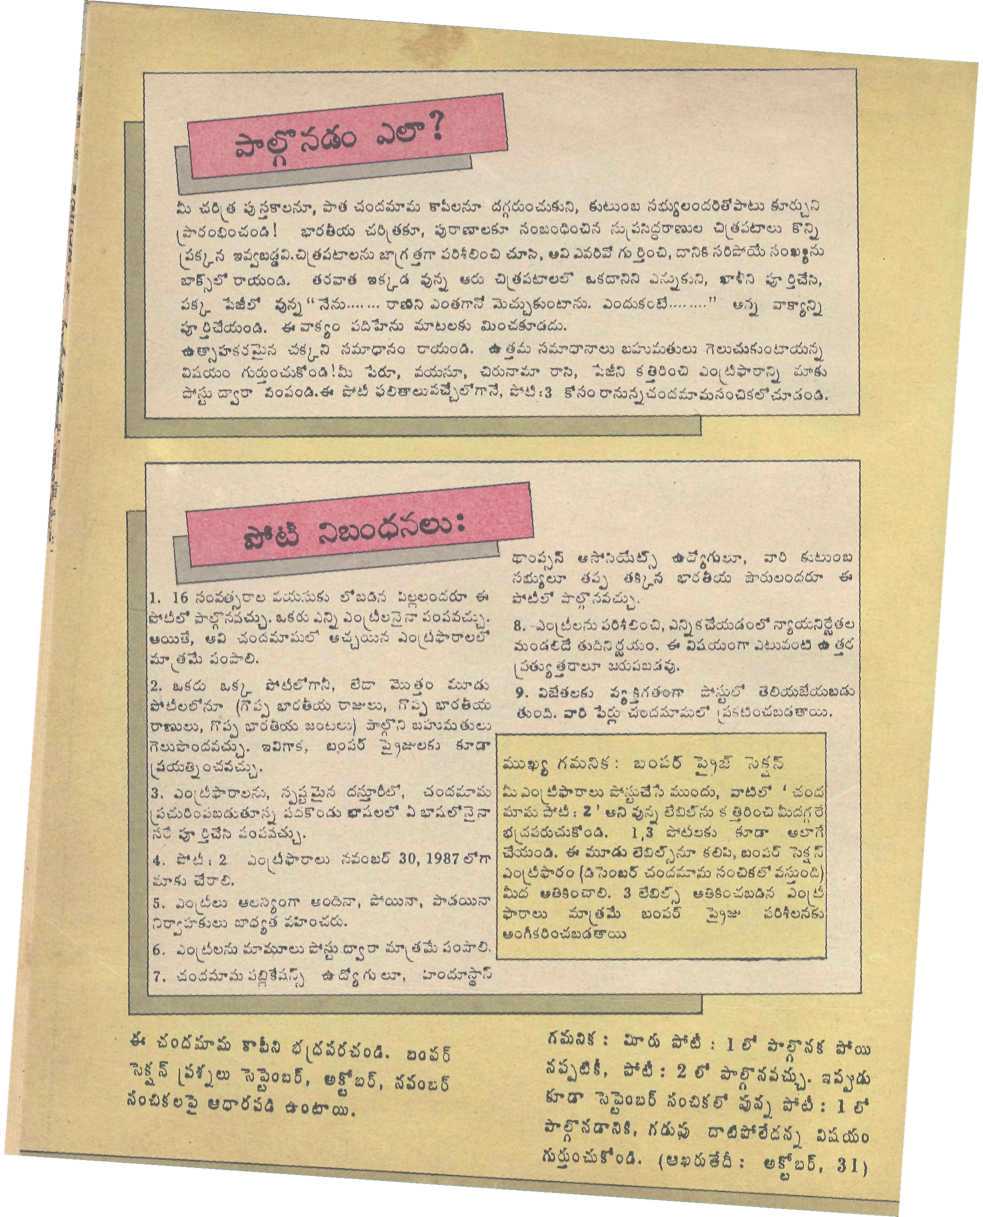 పాల్గొనడం ఎలా?
మీ చరిత్ర పుస్తకాలనూ, పాత చందమామ కాపీలనూ దగ్గరుంచుకుని, కుటుంబ సభ్యులందరితోపాటు కూర్చుని
ప్రారంభించండి! భారతీయ చరిత్రకూ, పురాణాలకూ సంబంధించిన సుప్రసిద్ధరాణుల చిత్రపటాలు కొన్ని
ప్రక్కన ఇవ్వబడ్డవి.చిత్రపటాలను జాగ్రత్తగా పరిశీలించి చూసి, అవి ఎవరివో గుర్తించి, దానికి సరిపోయే సంఖ్యను
బాక్స్‌లో రాయండి. తరవాత ఇక్కడ వున్న ఆరు చిత్రపటాలలో ఒకదానిని ఎన్నుకుని, ఖాళీని పూర్తిచేసి,
పక్క పేజీలో వున్న "నేను....... రాణిని ఎంతగానో మెచ్చుకుంటాను. ఎందుకంటే........" అన్న వాక్యాన్ని
పూర్తిచేయండి. ఈ వాక్యం పదిహేను మాటలకు మించకూడదు.
ఉత్సాహకరమైన చక్కని సమాధానం రాయండి. ఉత్తమ సమాధానాలు బహుమతులు గెలుచుకుంటాయన్న
విషయం గుర్తుంచుకోండి!మీ పేరూ, వయసూ, చిరునామా రాసి, పేజీని కత్తిరించి ఎంట్రీఫారాన్ని మాకు
పోస్టు ద్వారా పంపండి.ఈ పోటీ ఫలితాలువచ్చేలోగానే, పోటీ:3 కోసం రానున్నచందమామసంచికలోచూడండి.
పోటీ నిబంధనలు:
1. 16 సంవత్సరాల వయసుకు లోబడిన పిల్లలందరూ ఈ
పోటీలో పాల్గొనవచ్చు. ఒకరు ఎన్ని ఎంట్రీలనైనా పంపవచ్చు.
అయితే, అవి చందమామలో అచ్చయిన ఎంట్రీఫారాలలో
మాత్రమే పంపాలి.
2. ఒకరు ఒక్క పోటీలోగానీ, లేదా మొత్తం మూడు
పోటీలలోనూ (గొప్ప భారతీయ రాజులు, గొప్ప భారతీయ
రాణులు, గొప్ప భారతీయ జంటలు) పాల్గొని బహుమతులు
గెలుపొందవచ్చు. ఇవిగాక, బంపర్ ప్రైజులకు కూడా
ప్రయత్నించవచ్చు.
3. ఎంట్రీఫారాలను, స్పష్టమైన దస్తూరీతో, చందమామ
ప్రచురింపబడుతూన్న పదకొండు భాషలలో ఏ భాషలోనైనా
సరే పూర్తిచేసి పంపవచ్చు.
4. పోటీ: 2 ఎంట్రీఫారాలు నవంబర్ 30, 1987 లోగా
మాకు చేరాలి.
5. ఎంట్రీలు ఆలస్యంగా అందినా, పోయినా, పాడయినా
నిర్వాహకులు బాధ్యత వహించరు.
6. ఎంట్రీలను మామూలు పోస్టు ద్వారా మాత్రమే పంపాలి.
7. చందమామ పబ్లికేషన్స్ ఉద్యోగులూ, హిందూస్థాన్
థాంప్సన్ అసోసియేట్స్ ఉద్యోగులూ, వారి కుటుంబ
సభ్యులూ తప్ప తక్కిన భారతీయ పౌరులందరూ ఈ
పోటీలో పాల్గొనవచ్చు.
8. ఎంట్రీలను పరిశీలించి, ఎన్నికచేయడంలో న్యాయనిర్ణేతల
మండలిదే తుదినిర్ణయం. ఈ విషయంగా ఎటువంటి ఉత్తర
ప్రత్యుత్తరాలూ జరుపబడవు.
9. విజేతలకు వ్యక్తిగతంగా పోస్టులో తెలియజేయబడు
తుంది. వారి పేర్లు చందమామలో ప్రకటించబడతాయి.
ముఖ్య గమనిక: బంపర్ ప్రైజ్ సెక్షన్
మీ ఎంట్రీఫారాలు పోస్టుచేసే ముందు, వాటిలో ' చంద
మామ పోటీ : 2 ' అని వున్న లేబిల్‌ను కత్తిరించి మీదగ్గరే
భద్రపరుచుకోండి. 1,3 పోటీలకు కూడా అలాగే
చేయండి. ఈ మూడు లేబిల్స్‌నూ కలిపి, బంపర్ సెక్షన్
ఎంట్రీఫారం (డిసెంబర్ చందమామ సంచికలో వస్తుంది)
మీద అతికించాలి. 3 లేబిల్స్ అతికించబడిన ఎంట్రీ
ఫారాలు మాత్రమే బంపర్ ప్రైజు పరిశీలనకు
అంగీకరించబడతాయి
ఈ చందమామ కాపీని భద్రపరచండి. బంపర్
సెక్షన్ ప్రశ్నలు సెప్టెంబర్, అక్టోబర్, నవంబర్
సంచికలపై ఆధారపడి ఉంటాయి.
గమనిక : మీరు పోటీ : 1 లో పాల్గొనక పోయి
నప్పటికీ, పోటీ : 2 లో పాల్గొనవచ్చు. ఇప్పుడు
కూడా సెప్టెంబర్ సంచికలో వున్న పోటీ : 1 లో
పాల్గొనడానికి, గడువు దాటిపోలేదన్న విషయం
గుర్తుంచుకోండి. (ఆఖరుతేదీ : అక్టోబర్, 31)